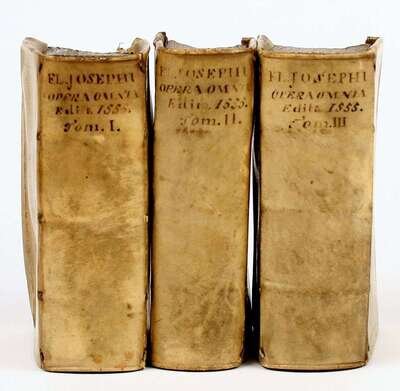 FL. JOSEPHI
OPERA OMNIA
Edit. 1555.
Tom. I.
FL. JOSEPHI
OPERA OMNIA
Edit. 1555.
Tom. II.
FL. JOSEPHI
OPERA OMNIA
Edit. 1555.
Tom. III